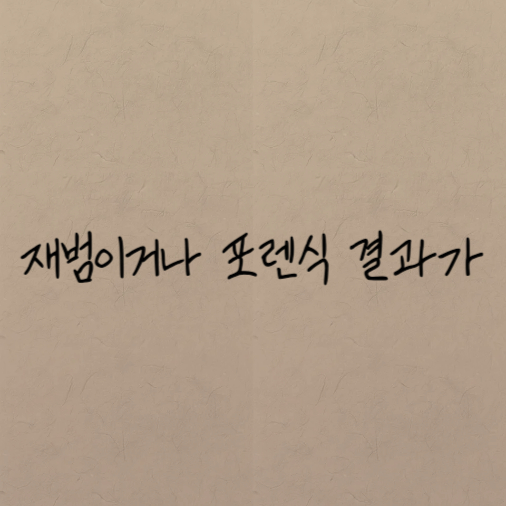 재범이거나 포렌식 결과가